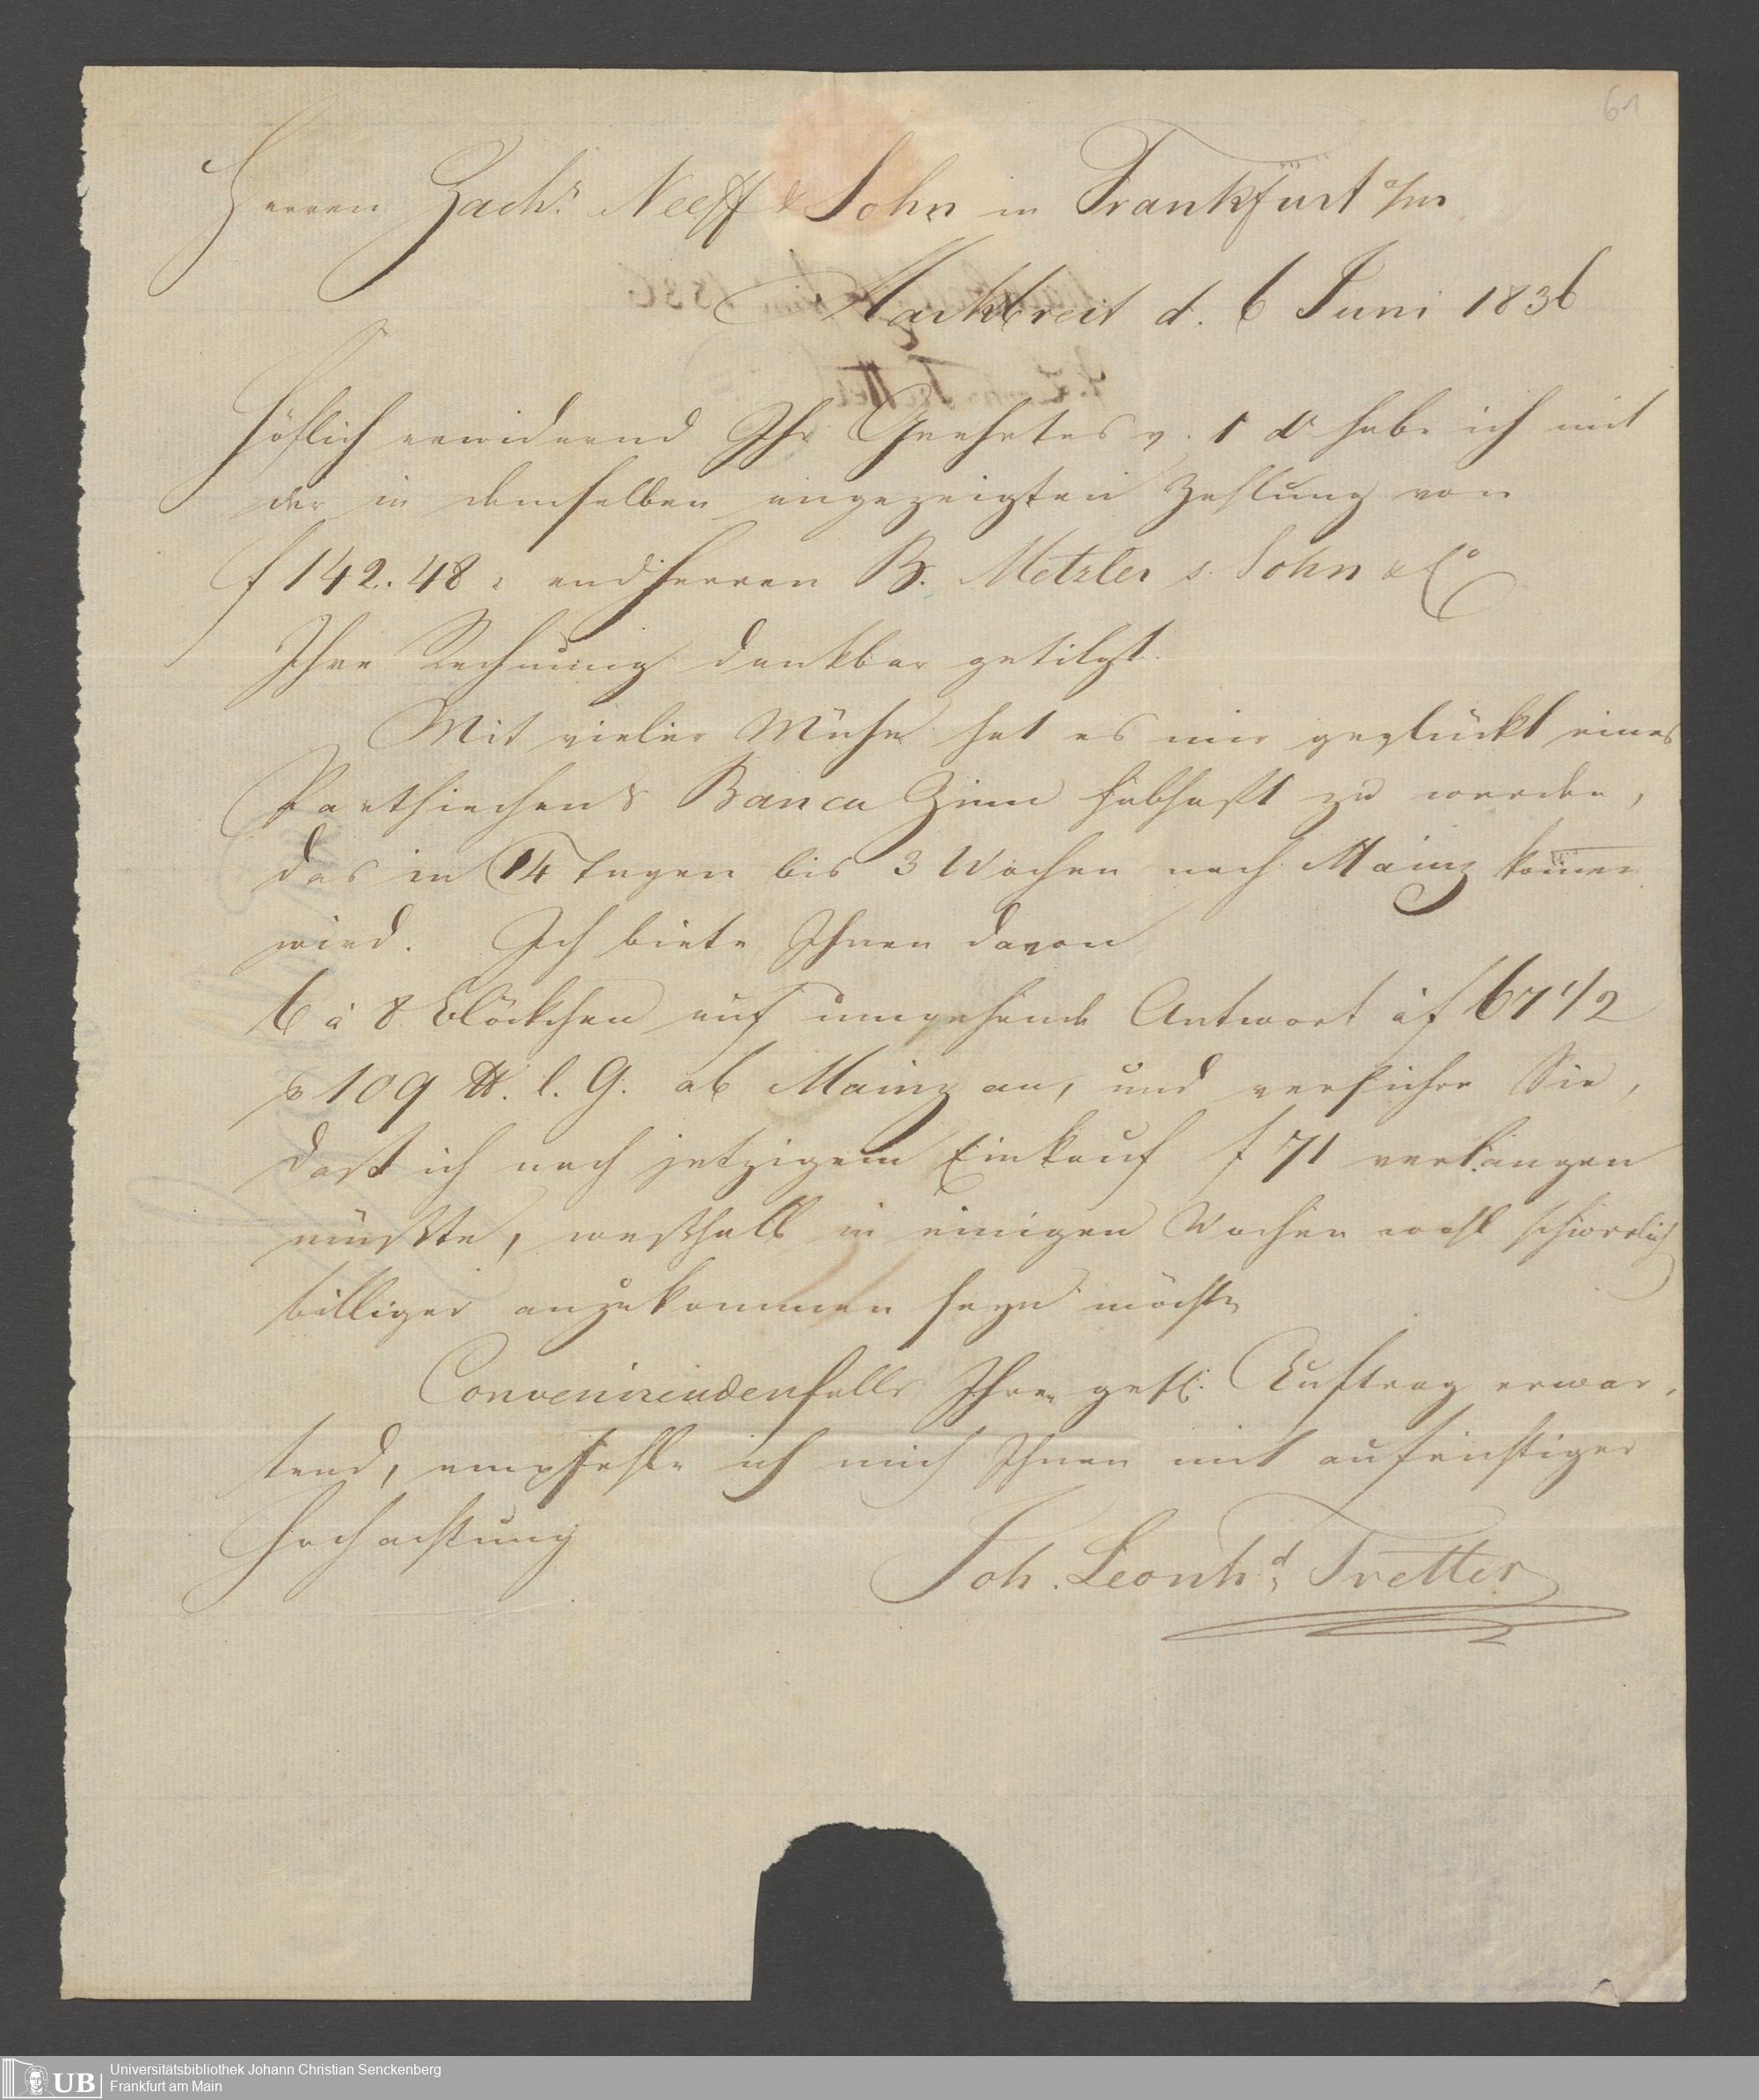 61
Herren Zachs. Neeff & Sohn in Frankfurt a/m
Marktbreit d. 6 Juni 1836
Höflich erwidernd Ihr Geehrtes v. 1 d habe ich mit
der in demselben angezeigten Zahlung von
f 142.48 Herren B. Metzler s. Sohn & Co
Ihre Rechnung dankbar getilgt.
Mit vieler Mühe hat es mir geglückt eines
Parthiechens Banca Zinn habhaft zu werden,
das in 14 Tagen bis 3 Wochen nach Mainz kom̄en
wird. Ich biete Ihnen davon
6 à 8 Blöckchen auf umgehende Antwort à f 67 1/2
p 109 ℔. l. G. ab Mainz an, und versichre Sie,
daß ich nach jetzigem Einkauf f 71 verlangen
müßte, weßhalb in einigen Wochen wohl schwerlich
billiger anzukommen seyn möchte
Convenirendenfalls Ihren gefl. Auftrag erwar,
tend, empfehle ich mich Ihnen mit aufrichtiger
Hochachtung
Joh. Leonhd. Tretter
UB Universitätsbibliothek Johann Christian Senckenberg
Frankfurt am Main